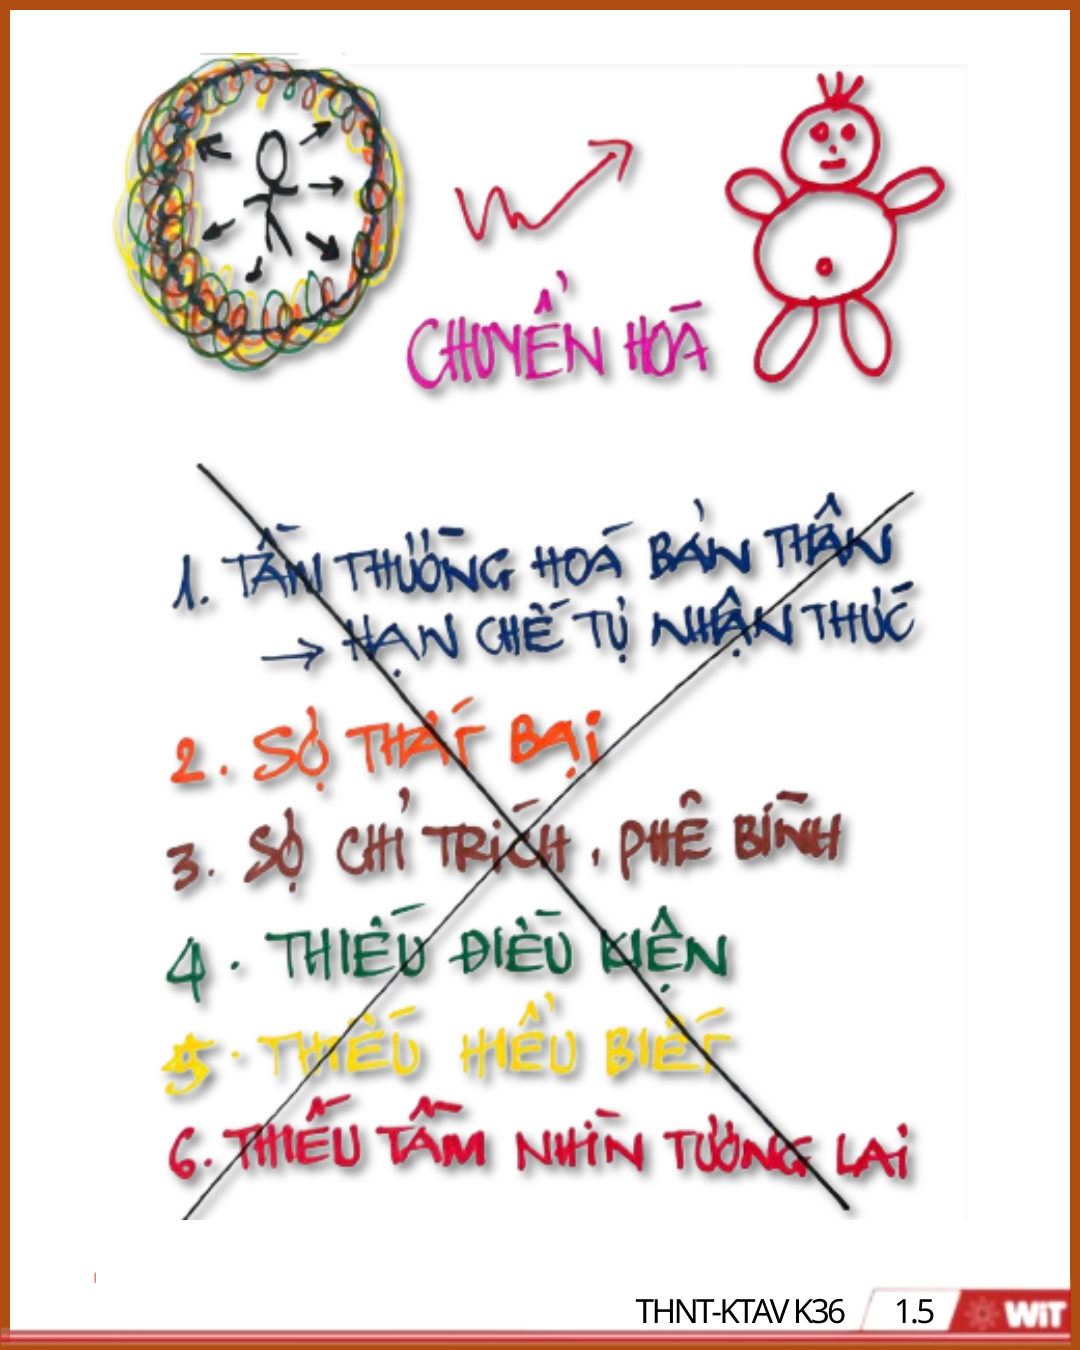 CHUYỂN HOÁ
1. TẦM THƯỜNG HOÁ BẢN THÂN
→ HẠN CHẾ TỰ NHẬN THỨC
2. SỢ THẤT BẠI
3. SỢ CHỈ TRÍCH, PHÊ BÌNH
4. THIẾU ĐIỀU KIỆN
5. THIẾU HIỂU BIẾT
6. THIẾU TẦM NHÌN TƯƠNG LAI
THNT-KTAV K36 1.5 WiT